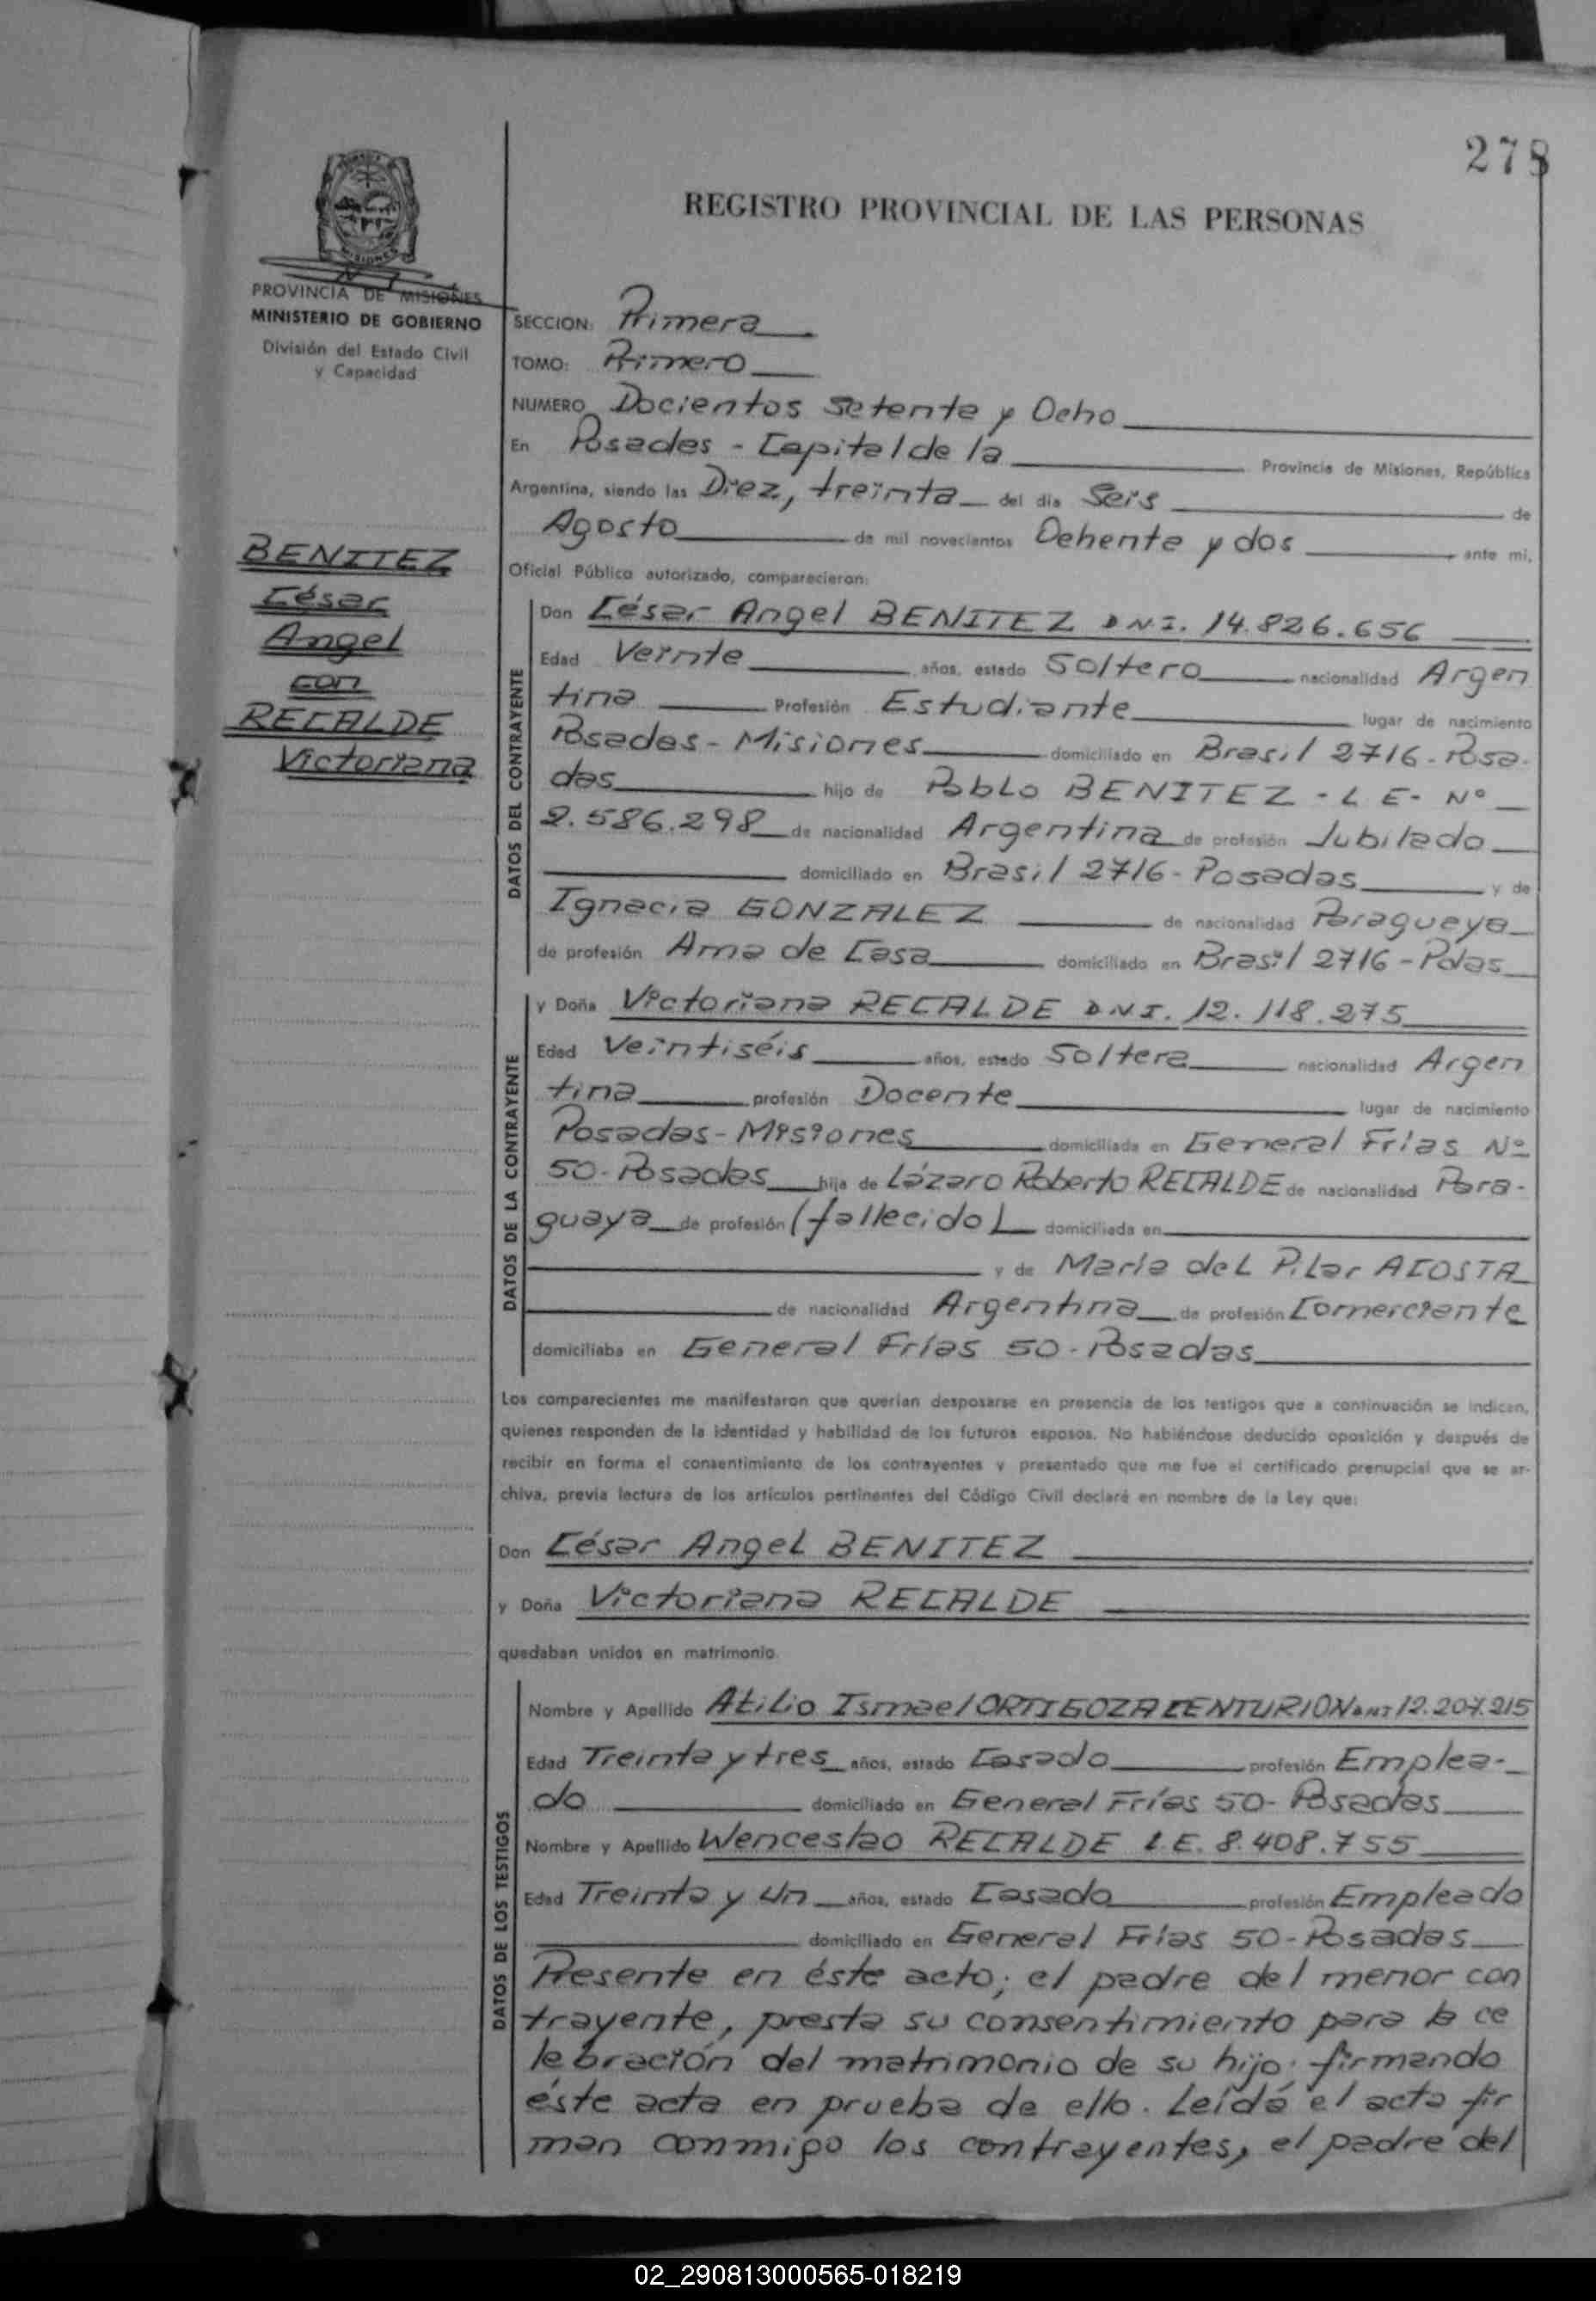 278
REGISTRO PROVINCIAL DE LAS PERSONAS
MISIONES
PROVINCIA DE MISIONES
MINISTERIO DE GOBIERNO
División del Estado Civil
y Capacidad
BENITEZ
César
Angel
con
RECALDE
Victoriana
SECCION: Primera
TOMO: Primero
NUMERO Docientos Setenta y Ocho
En Posadas - Capital de la Provincia de Misiones, República
Argentina, siendo las Diez, treinta del día Seis de
Agosto de mil novecientos Ochenta y dos ante mi,
Oficial Público autorizado, comparecieron:
DATOS DEL CONTRAYENTE
Don César Angel BENITEZ DNI. 14.826.656
Edad Veinte años, estado Soltero nacionalidad Argen
tina Profesión Estudiante lugar de nacimiento
Posadas - Misiones domiciliado en Brasil 2716 - Posa-
das hijo de Pablo BENITEZ - L E - Nº
2.586.298 de nacionalidad Argentina de profesión Jubilado
domiciliado en Brasil 2716 - Posadas y de
Ignacia GONZALEZ de nacionalidad Paraguaya
de profesión Ama de Casa domiciliado en Brasil 2716 - Pdas
DATOS DE LA CONTRAYENTE
y Doña Victoriana RECALDE DNI. 12.118.275
Edad Veintiséis años, estado Soltera nacionalidad Argen
tina profesión Docente lugar de nacimiento
Posadas - Misiones domiciliada en General Frías Nº
50 - Posadas hija de Lázaro Roberto RECALDE de nacionalidad Para-
guaya de profesión (fallecido) domiciliada en
y de María del Pilar ACOSTA
de nacionalidad Argentina de profesión Comerciante
domiciliaba en General Frías 50 - Posadas
Los comparecientes me manifestaron que querían desposarse en presencia de los testigos que a continuación se indican,
quienes responden de la identidad y habilidad de los futuros esposos. No habiéndose deducido oposición y después de
recibir en forma el consentimiento de los contrayentes y presentado que me fue el certificado prenupcial que se ar-
chiva, previa lectura de los artículos pertinentes del Código Civil declaré en nombre de la Ley que:
Don César Angel BENITEZ
y Doña Victoriana RECALDE
quedaban unidos en matrimonio.
DATOS DE LOS TESTIGOS
Nombre y Apellido Atilio Ismael ORTIGOZA CENTURION DNI 12.207.215
Edad Treinta y tres años, estado Casado profesión Emplea-
do domiciliado en General Frías 50 - Posadas
Nombre y Apellido Wenceslao RECALDE L.E. 8.408.755
Edad Treinta y Un años, estado Casado profesión Empleado
domiciliado en General Frías 50 - Posadas
Presente en éste acto; el padre del menor con
trayente, presta su consentimiento para la ce
lebración del matrimonio de su hijo, firmando
éste acta en prueba de ello. Leída el acta fir
man conmigo los contrayentes, el padre del
02_290813000565-018219